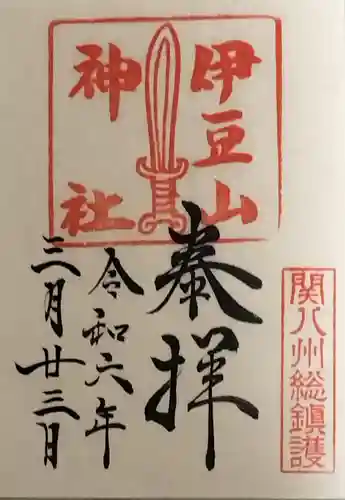 伊豆山
神社
奉拝
令和六年
三月廿三日
関八州総鎮護